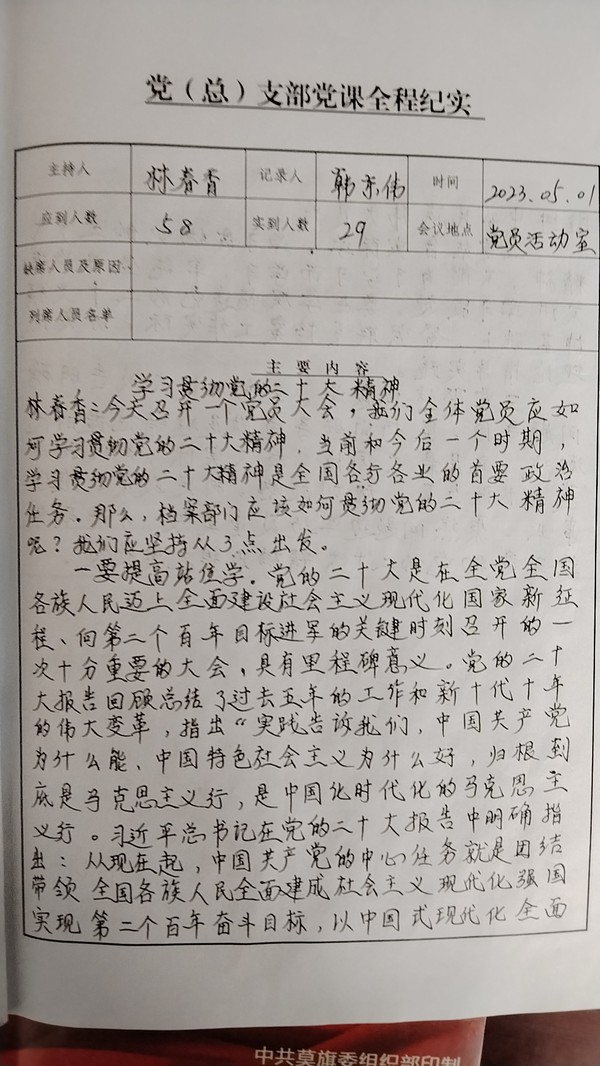 党（总）支部党课全程纪实
主持人 林春香 记录人 韩东伟 时间 2023.05.01
应到人数 58 实到人数 29 会议地点 党员活动室
缺席人员及原因
列席人员名单
主要内容
学习贯彻党的二十大精神
林春香：今天召开一个党员大会，我们全体党员应如
何学习贯彻党的二十大精神.当前和今后一个时期，
学习贯彻党的二十大精神是全国各行各业的首要政治
任务.那么，档案部门应该如何贯彻党的二十大精神
呢？我们应坚持从3点出发。
一要提高站位学.党的二十大是在全党全国
各族人民迈上全面建设社会主义现代化国家新征
程、向第二个百年目标进军的关键时刻召开的一
次十分重要的大会，具有里程碑意义。党的二十
大报告回顾总结了过去五年的工作和新十代十年
的伟大变革，指出“实践告诉我们，中国共产党
为什么能、中国特色社会主义为什么好，归根到
底是马克思主义行，是中国化时代化的马克思主
义行。习近平总书记在党的二十大报告中明确指
出：从现在起，中国共产党的中心任务就是团结
带领全国各族人民全面建成社会主义现代化强国
实现第二个百年奋斗目标，以中国式现代化全面
中共莫旗委组织部印制